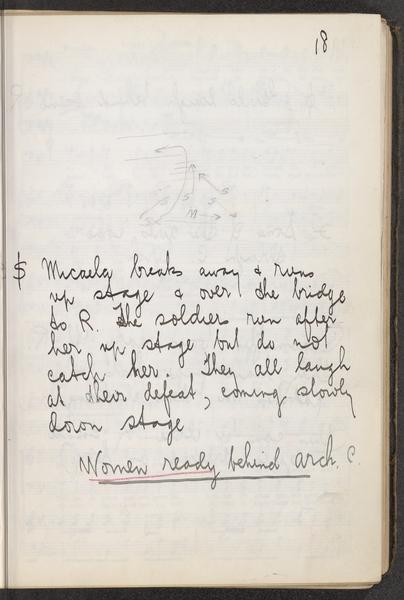 18
S S S
M
$ Micaela breaks away & runs
up stage & over the bridge
to R. The soldiers run after
her up stage but do not
catch her. They all laugh
at their defeat, coming slowly
down stage
Women ready behind arch. C.